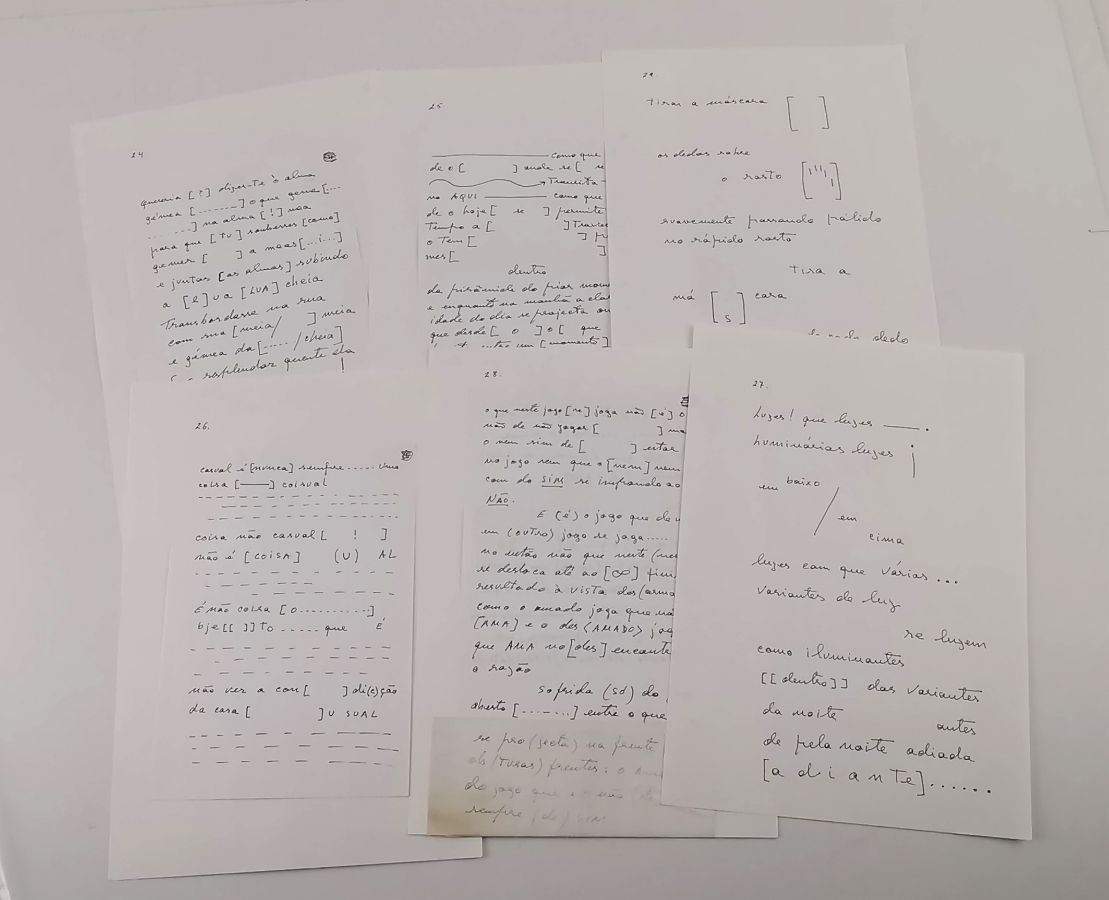 24
queria [?] dizer-te ò alma
gémea [........] o que geme[...
........] na alma [!] nua
para que [TU] soubesses [como]
gemer [ ] a meas[...i...]
e juntas [as almas] subindo
a [R]ua [LUA] cheia
Transbordasse na rua
com sua [meia/ ] meia
e gémea da[..... /cheia]
resplendor quente ela
25
como que
de o [ ] onde se[ se
Transita-
no AQUI como que
de o hoje [ se ] permite
Tempo a [ ]
o Tem[ ]
mes[ ]
dentro
da pirâmide do
e enquanto na manhã a cla
idade do dia se projecta
que desde[ o ]o[ que
um [momento]
29.
Tirar a máscara [ ]
os dedos sobre
o rosto [ ]
suavemente passando pálido
no rápido rosto
Tira a
má [ s ] cara
dedo
26.
casual é [nunca] sempre ..... uma
coisa [——] coisual
coisa não casual [ ! ]
não é [COISA] (U) AL
É não coisa [O...........]
bje[[ ]]TO ...... que É
não ver a con[ ]di(c)ção
da casa [ ]U SUAL
28.
o que neste jogo [se] joga não [é] o
não de não jogar [ ]
o nem sim de [ ] estar
no jogo sem que o [nem] nem
com do SIM se insfrando ao
NÃO.
E (é) o jogo que de
em (OUTRO) jogo se joga......
no então não que neste
se desloca até ao [∞] fim
resultado à vista dos (arma
como o amado joga que
[AMA] e o des (AMADO) jog
que AMA no [des] encante
o razão
sofrida (sd) do
aberto [.......] entre o que
se pro (jecta) na frente
ob (TUSAS) frentes: o
do jogo que é o não
sempre (de) SIM
27.
Luzes! que luzes ——.
Luminárias luzes ¡
em baixo
/ em
cima
luzes com que várias ...
variantes de luz
se luzem
como iluminantes
[[dentro]] das variantes
da noite antes
de pela noite adiada
[a d i a n T e]......